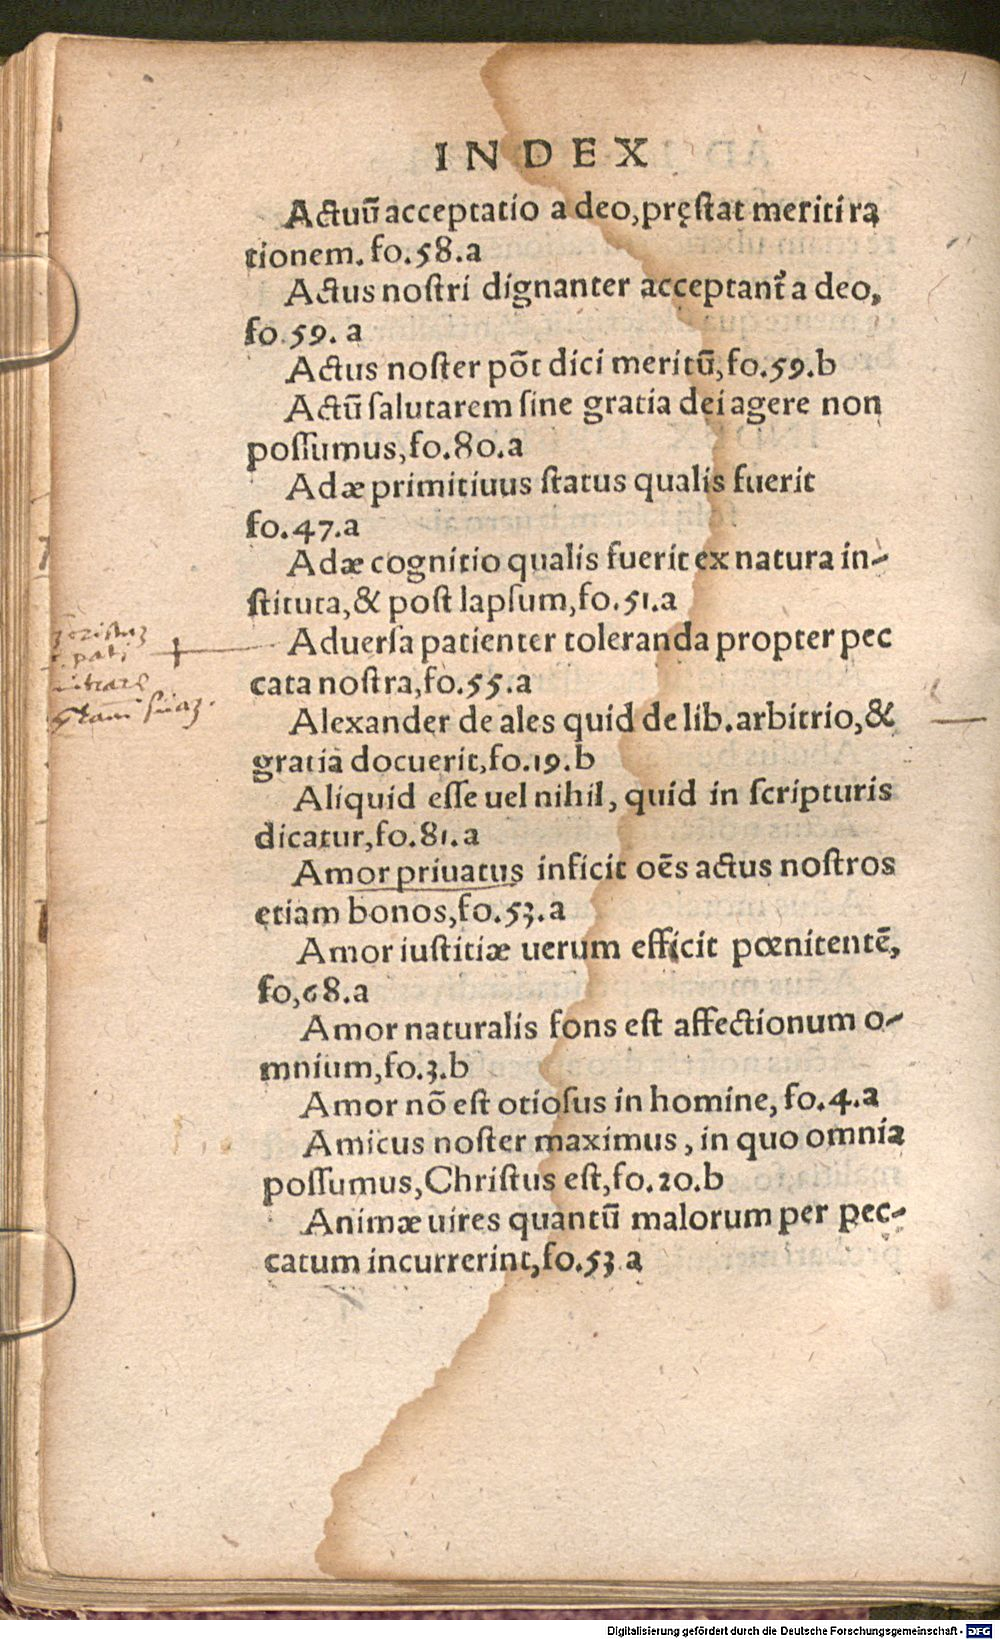 INDEX
Actuū acceptatio a deo, pręstat meriti ra
tionem. fo.58.a
Actus nostri dignanter acceptant᷑ a deo,
fo.59.a
Actus noster põt dici meritū, fo.59.b
Actū salutarem sine gratia dei agere non
possumus, fo.80.a
Adæ primitiuus status qualis fuerit
fo.47.a
Adæ cognitio qualis fuerit ex natura in-
stituta, & post lapsum, fo.51.a
Aduersa patienter toleranda propter pec
cata nostra, fo.55.a
Alexander de ales quid de lib. arbitrio, &
gratia docuerit, fo.19.b
Aliquid esse uel nihil, quid in scripturis
dicatur, fo.81.a
Amor priuatus inficit oẽs actus nostros
etiam bonos, fo.53.a
Amor iustitiæ uerum efficit pœnitentẽ,
fo,68.a
Amor naturalis fons est affectionum o-
mnium, fo.3.b
Amor nõ est otiosus in homine, fo.4.a
Amicus noster maximus, in quo omnia
possumus, Christus est, fo.20.b
Animæ uires quantū malorum per pec-
catum incurrerint, fo.53.a
pati
Digitalisierung gefördert durch die Deutsche Forschungsgemeinschaft - DFG